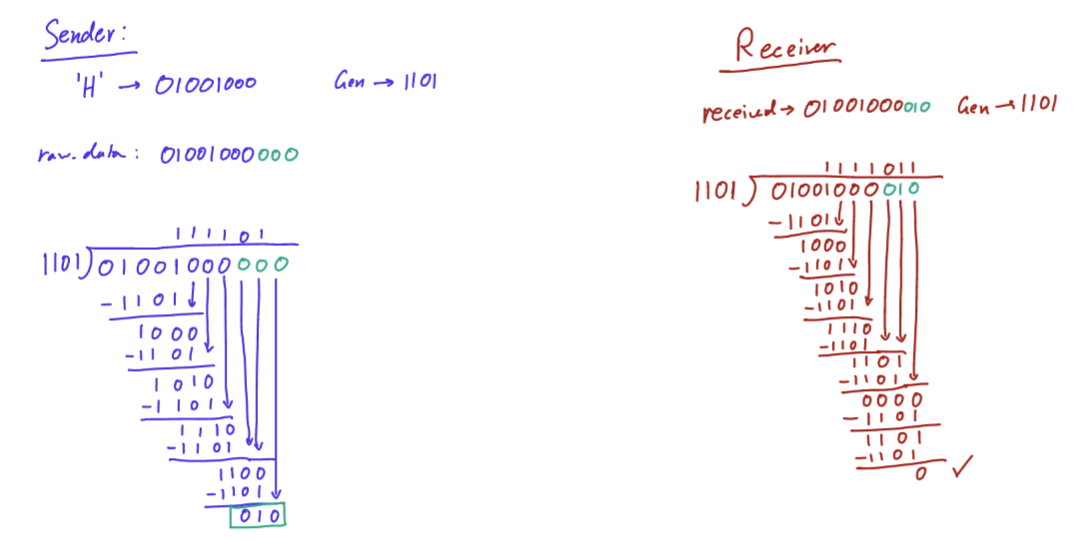 Sender:
'H' → 01001000 Gen → 1101
raw. data : 01001000000
111101
1101)01001000000
-1101
1000
-1101
1010
-1101
1110
-1101
1100
-1101
010
Receiver
received → 01001000010 Gen → 1101
1111011
1101)01001000010
-1101
1000
-1101
1010
-1101
1110
-1101
1101
-1101
0000
-1101
1101
-1101
0 ✓